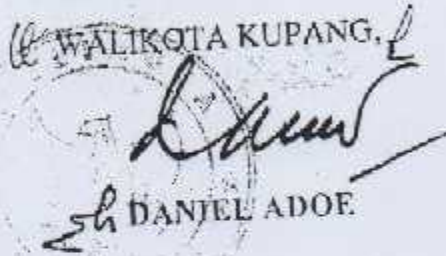 WALIKOTA KUPANG,
DANIEL ADOE